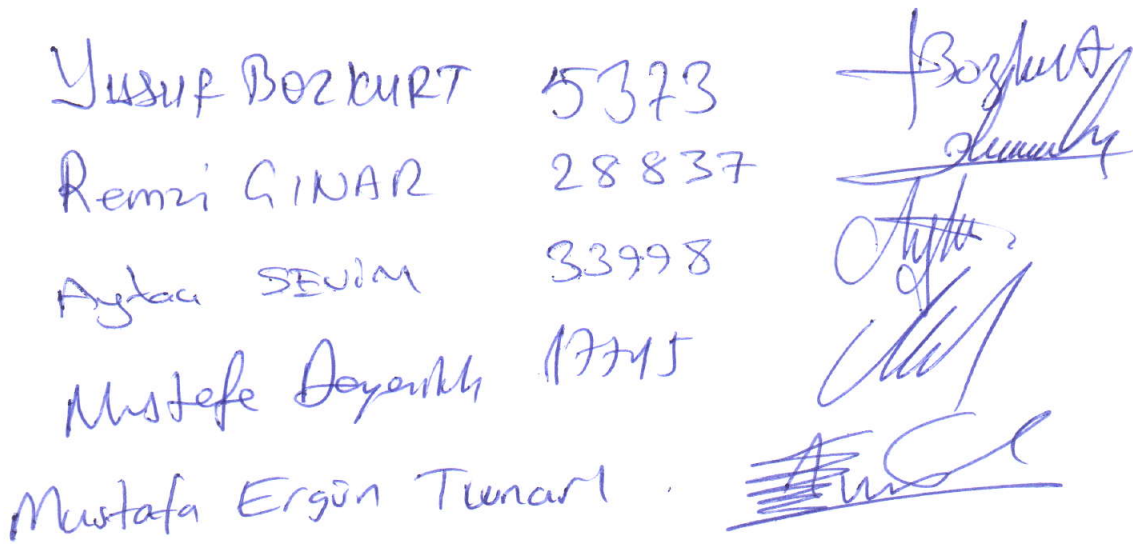 Yusuf BOZKURT 5373 Bozkurt
Remzi ÇINAR 28837
Aytaç SEVİM 33998
Mustafa 17745
Mustafa Ergün